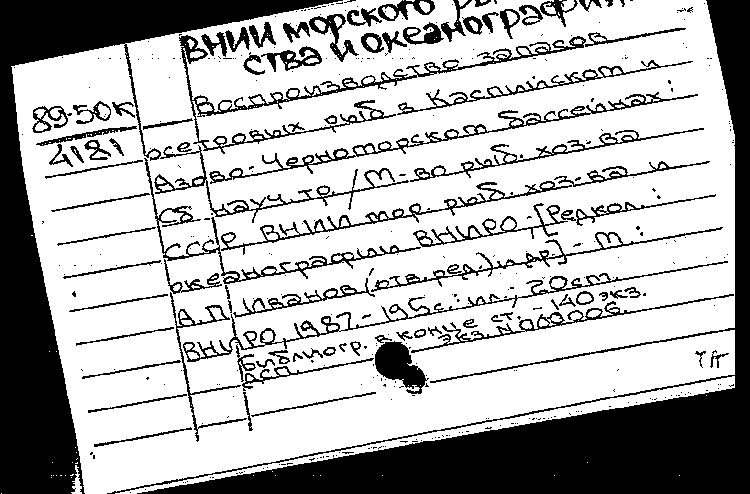 ВНИИ морского
ства и океанографии.
89-50К
4181
Воспроизводство запасов
осетровых рыб в Каспийском и
Азово-Черноморском бассейнах:
Сб. науч. тр. / М-во рыб. хоз-ва
СССР, ВНИИ мор. рыб. хоз-ва и
океанографии ВНИРО; [Редкол.:
А.П. Иванов (отв. ред.) и др.] - М.:
ВНИРО, 1987. - 195 с.: ил.; 20 см.
Библиогр. в конце ст. - 140 экз.
ДСП. экз. N 000006.